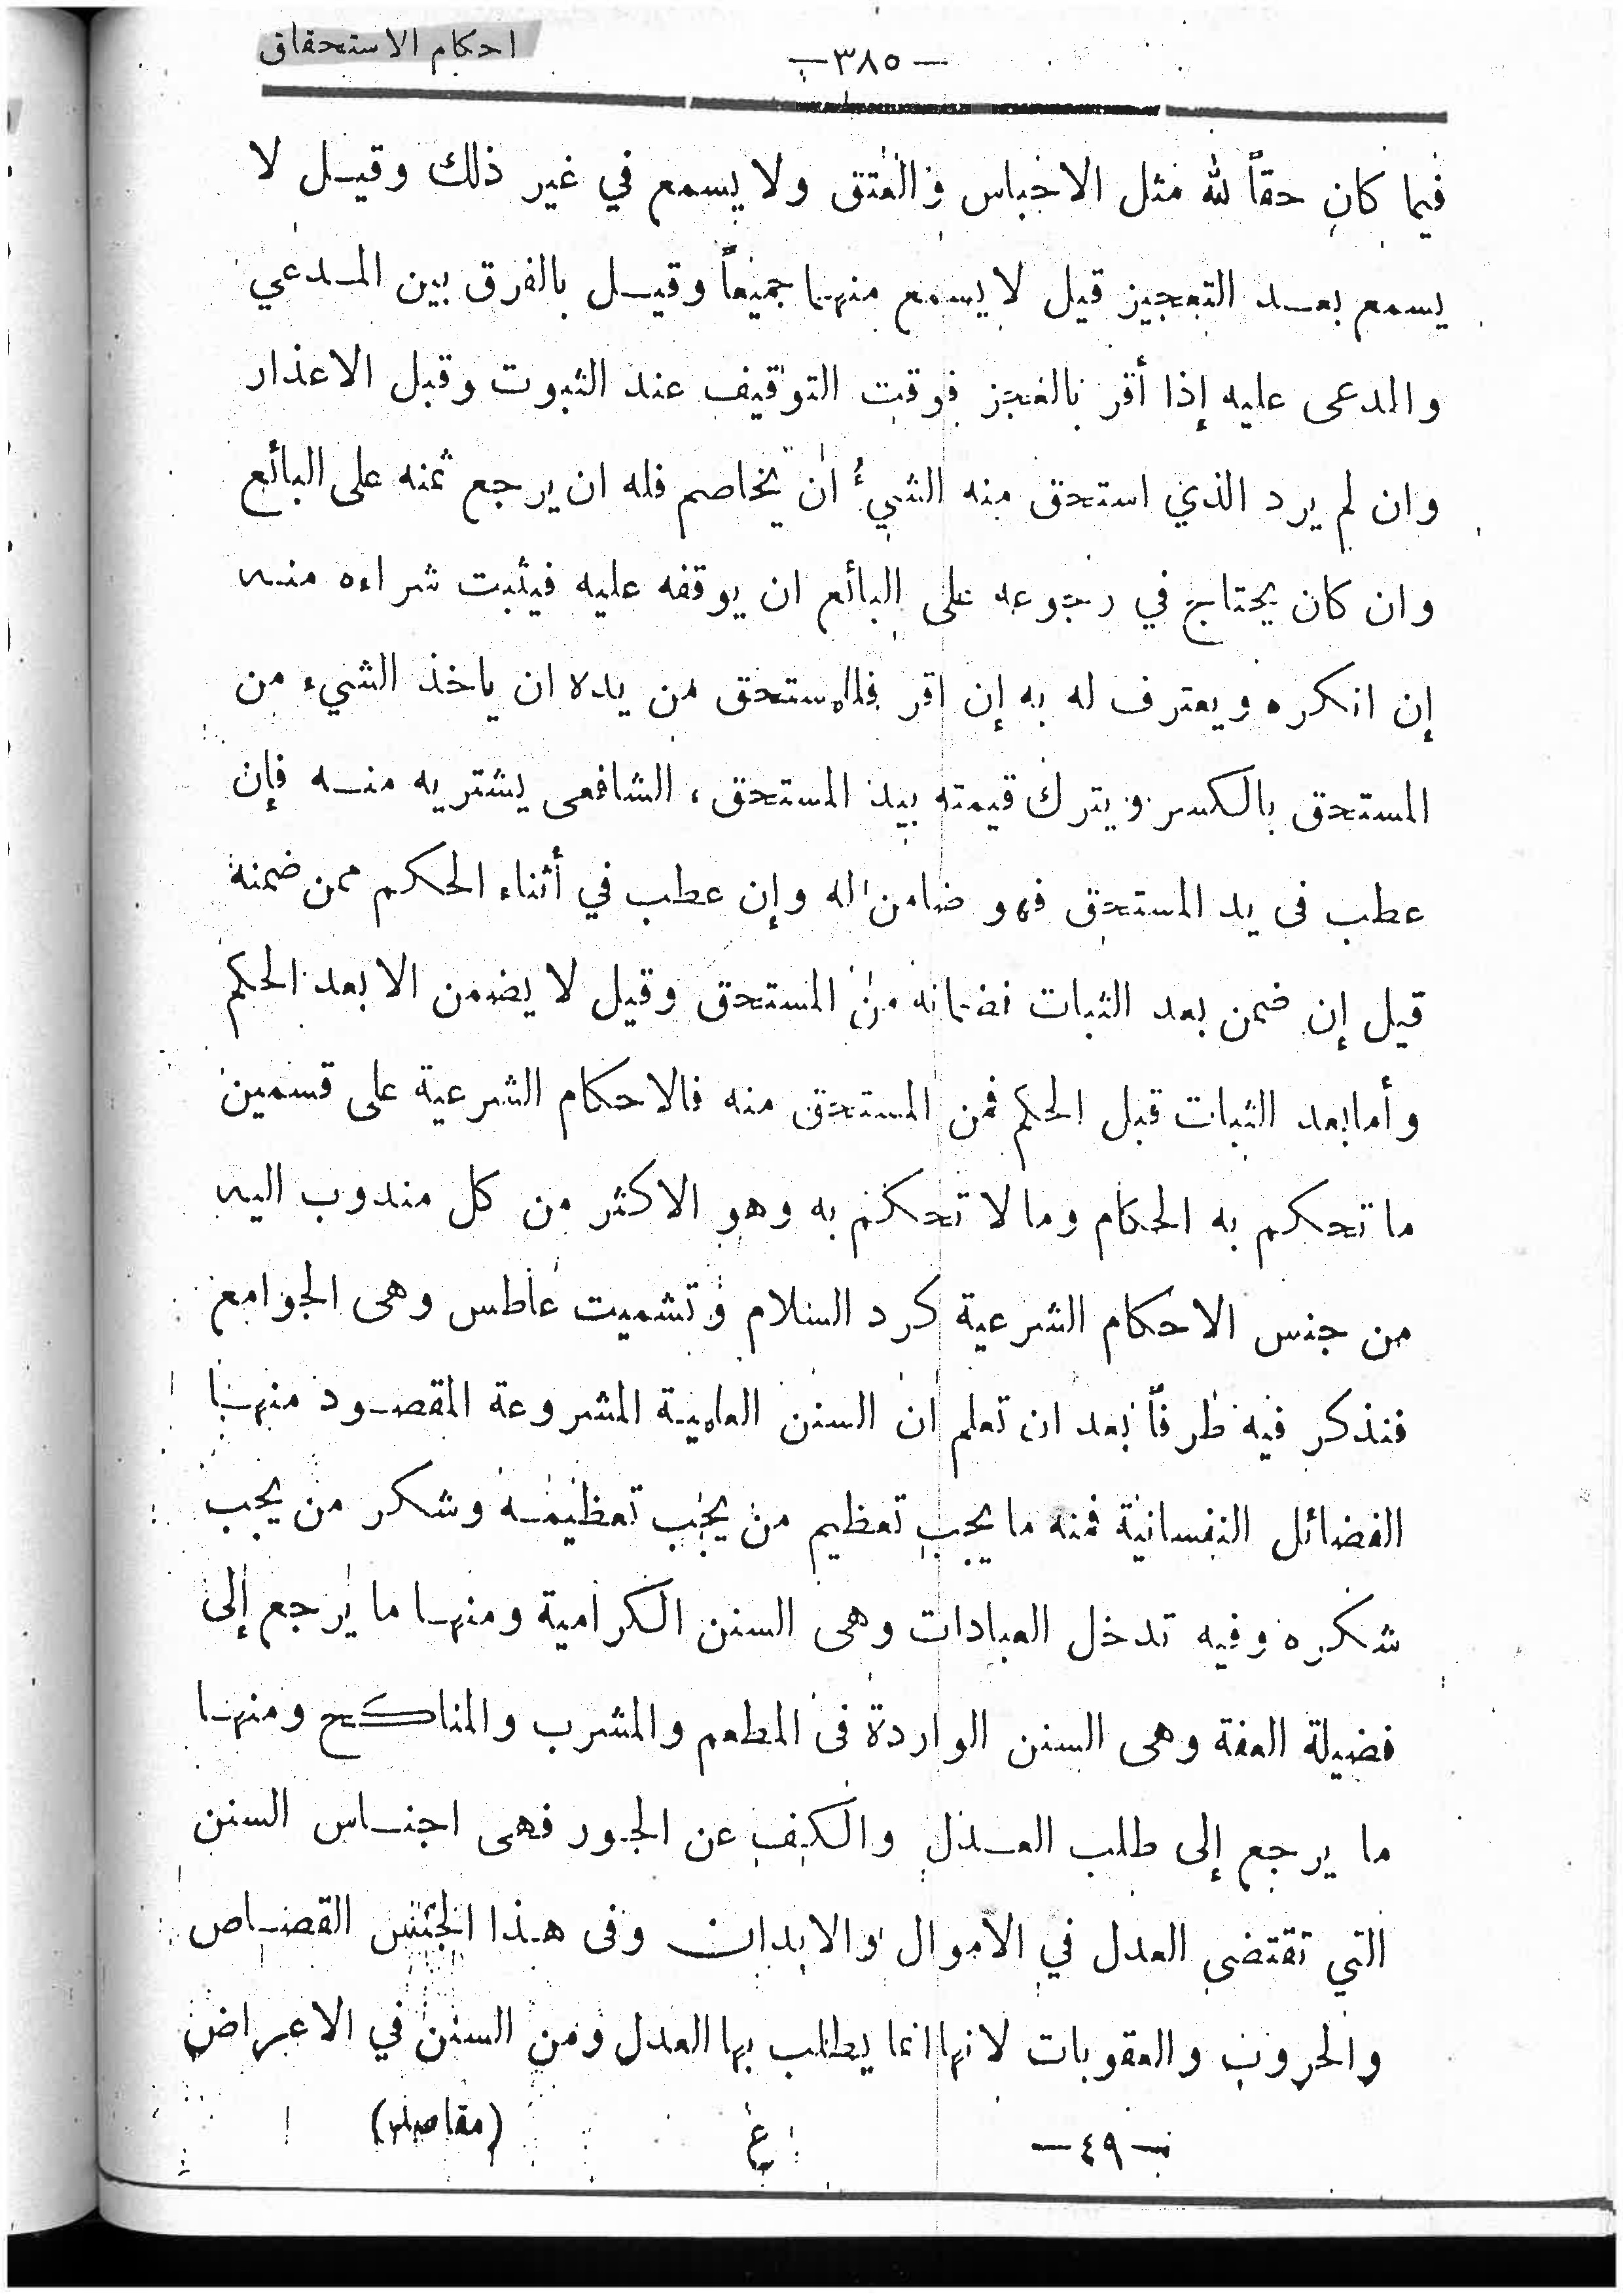 احكام الاستحقاق
— ٣٨٥ —
فيما كان حقاً لله مثل الاحباس والعتق ولا يسمع في غير ذلك وقيل لا
يسمع بعد التعجيز قيل لا يسمع منهما جميعاً وقيل بالفرق بين المدعي
والمدعى عليه إذا أقر بالعجز فوقت التوقيف عند الثبوت وقبل الاعذار
وان لم يرد الذي استحق منه الشيء أن يخاصم فله ان يرجع ثمنه على البائع
وان كان يحتاج في رجوعه على البائع ان يوقفه عليه فيثبت شراءه منه
إن انكره ويعترف له به إن اقر فللمستحق من يده ان ياخذ الشيء من
المستحق بالكسر ويترك قيمته بيد المستحق ، الشافعى يشتريه منه فإن
عطب فى يد المستحق فهو ضامن له وإن عطب في أثناء الحكم ممن ضمنه
قيل إن ضمن بعد الثبات فضمانه من المستحق وقيل لا يضمن الا بعد الحكم
وأما بعد الثبات قبل الحكم فمن المستحق منه فالاحكام الشرعية على قسمين
ما تحكم به الحكام وما لا تحكم به وهو الاكثر من كل مندوب اليه
من جنس الاحكام الشرعية كرد السلام وتشميت عاطس وهى الجوامع
فنذكر فيه طرفاً بعد ان تعلم ان السنن العامية المشروعة المقصود منها
الفضائل النفسانية فمنه ما يجب تعظيم من يجب تعظيمه وشكر من يجب
شكره وفيه تدخل العبادات وهى السنن الكرامية ومنها ما يرجع إلى
فضيلة العفة وهى السنن الواردة فى المطعم والمشرب والمناكح ومنها
ما يرجع إلى طلب العدل والكف عن الجور فهى اجناس السنن
التي تقتضى العدل في الاموال والابدان وفى هذا الجنس القصاص
والحروب والعقوبات لانها انما يطلب بها العدل ومن السنن في الاعراض
— ٤٩ — ع (مقاصد)